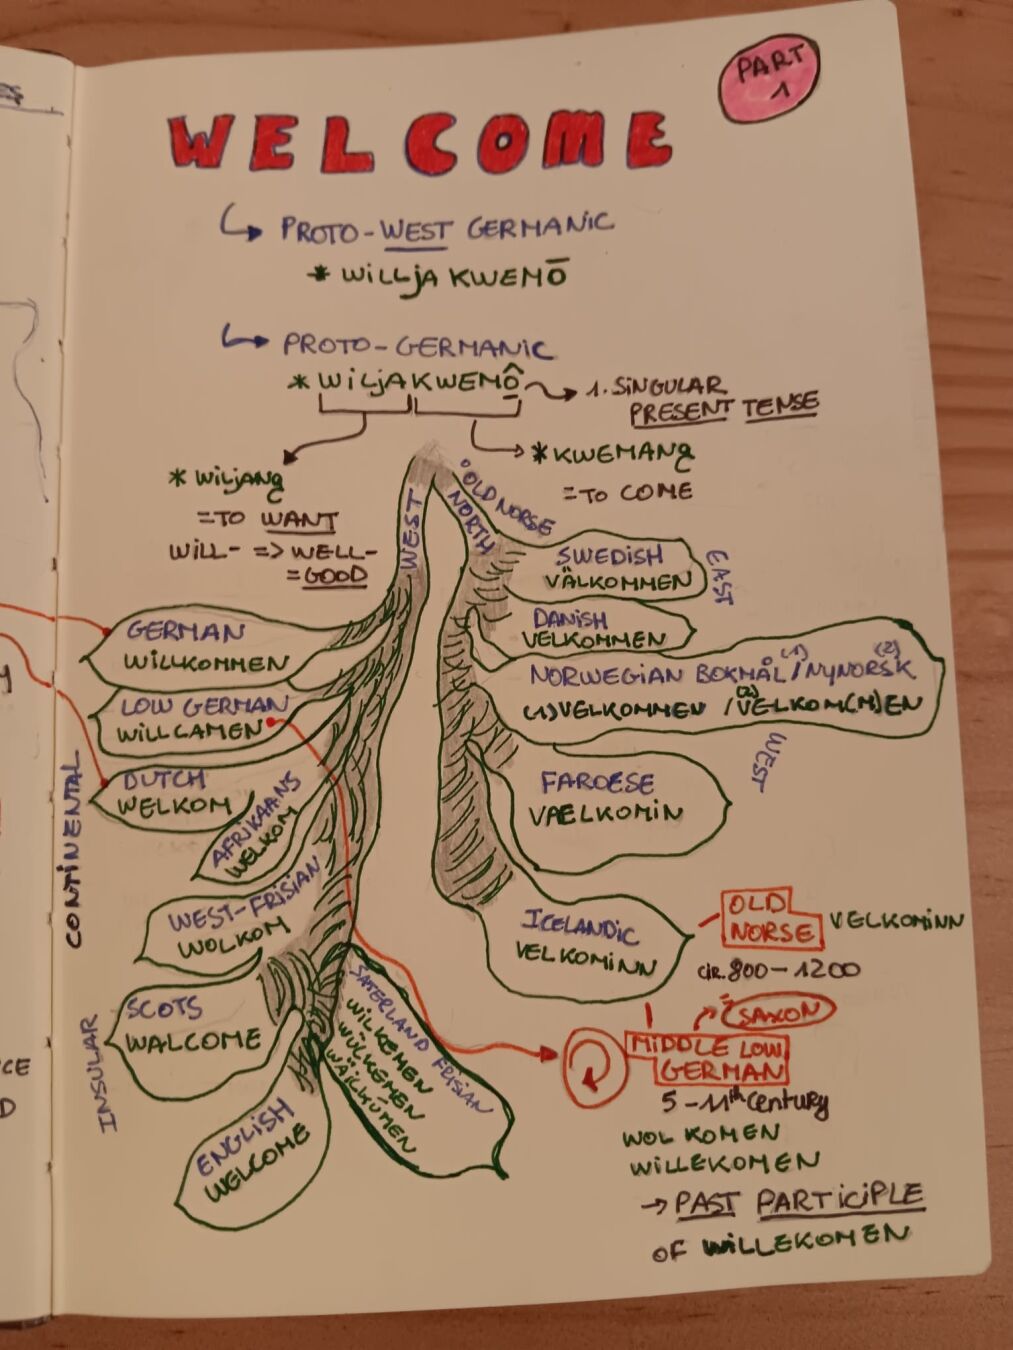 PART
1
WELCOME
PROTO-WEST GERMANIC
* WILLJA KWEMŌ
PROTO-GERMANIC
* WILJAKWEMÔ
1. SINGULAR
PRESENT TENSE
* WILJANĄ
= TO WANT
WILL- => WELL-
= GOOD
* KWEMANĄ
= TO COME
WEST
NORTH
OLD NORSE
SWEDISH
VÄLKOMMEN
EAST
DANISH
VELKOMMEN
NORWEGIAN BOKMÅL(1)/NYNORSK(2)
(1)VELKOMMEN /(2)VELKOM(M)EN
WEST
FAROESE
VAELKOMIN
ICELANDIC
VELKOMINN
OLD
NORSE
VELKOMINN
CIR. 800-1200
GERMAN
WILLKOMMEN
LOW GERMAN
WILLCAMEN
DUTCH
WELKOM
AFRIKAANS
WELKOM
CONTINENTAL
WEST-FRISIAN
WOLKOM
SCOTS
WALCOME
INSULAR
ENGLISH
WELCOME
SATERLAND FRISIAN
WILKEMEN
WULKEMEN
WÄILKUMEN
SAXON
MIDDLE LOW
GERMAN
5-11th Century
WOL KOMEN
WILLEKOMEN
→ PAST PARTICIPLE
OF WILLEKOMEN
Y
CE
D